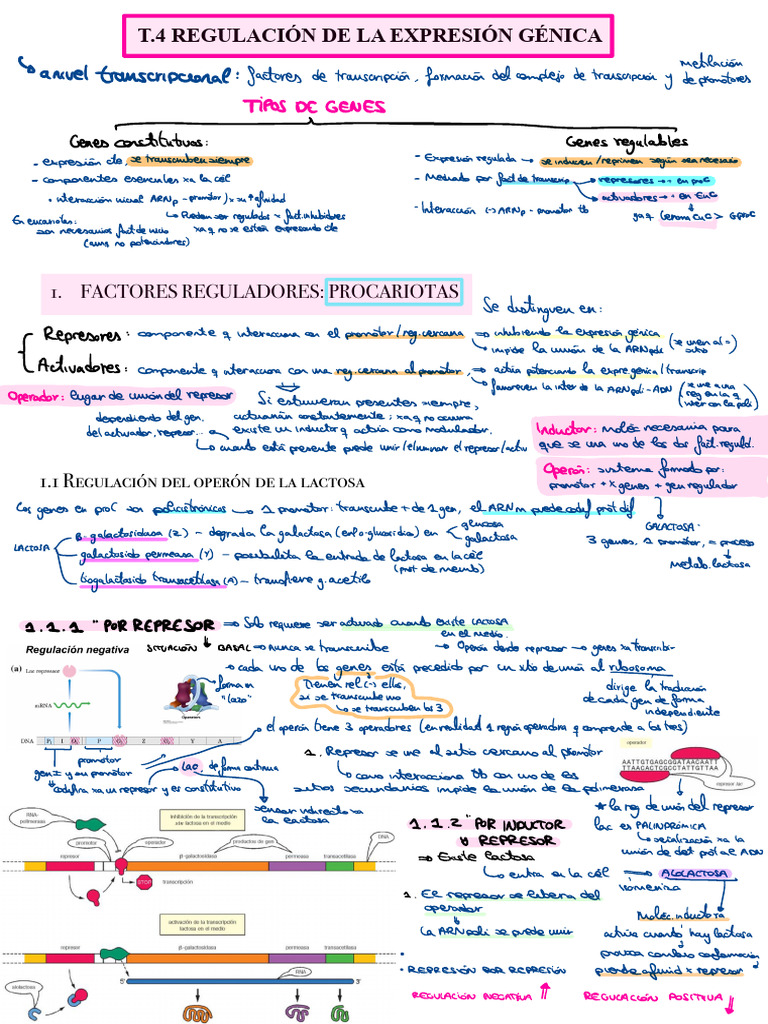 T.4 REGULACIÓN DE LA EXPRESIÓN GÉNICA
a nivel transcripcional: factores de transcripción, formación del complejo de transcripción y metilación de promotores
TIPOS DE GENES
Genes constitutivos:
- expresión cte, se transcriben siempre
- componentes esenciales xa la cél
• interacción inicial ARNp - promotor) xa ↑afinidad
↳ Pueden ser regulados x fact. inhibidores
xa q no se estén expresando cte
En eucariotas:
son necesarios fact de inicio
(aunq no potenciadores)
Genes regulables
- Expresión regulada → se inducen/reprimen según sea necesario
- Mediado por fact de transcrip. → represores → + en proC
→ activadores → + en EuC
- Interacción (-) ARNp - promotor tb
ya q Genoma EuC > GproC
1. FACTORES REGULADORES: PROCARIOTAS
Se distinguen en:
Represores: componente q interacciona con el promotor/reg. cercana ⇒ inhibiendo la expresión génica
→ impide la unión de la ARN poli (se unen al sitio
Activadores: componente q interacciona con una reg. cercana al promotor, → activa potenciando la expre génica/transcrip
→ favorecen la inter de la ARN poli - ADN
Operador: lugar de unión del represor
Si estuvieran presentes siempre,
actuarían constantemente; xa q no ocurra
existe un inductor q actúa como modulador.
dependiendo del gen,
del activador, represor...
↳ cuando está presente puede unir/eliminar el represor/activ
Inductor: moléc necesaria para
que se una uno de los dos fact. reguld.
Operón: sistema formado por:
promotor + x genes + gen regulador
1.1 REGULACIÓN DEL OPERÓN DE LA LACTOSA
Los genes en proC son policistrónicos → 1 promotor: transcribe + de 1 gen, el ARNm puede codif prot dif
GALACTOSA:
3 genes, 1 promotor, a proceso
↓
metab. lactosa
LACTOSA
B-galactosidasa (Z) - degrada la galactosa en glucosa
galactosa
galactosido permeasa (Y) - posibilita la entrada de lactosa en la cél
(prot de memb)
tiogalactosido transacetilasa (A) - transfiere g. acetilo
1.1.1 "POR REPRESOR ⇒ Solo requiere ser activado cuando existe LACTOSA
en el medio.
Regulación negativa
SITUACIÓN BASAL → Nunca se transcribe → Operón dando represor → genes xa transcribir
→ cada uno de los genes está precedido por un sitio de unión al ribosoma
↓
dirige la traducción
de cada gen de forma
independiente
Tienen rel (-) ellos,
si se transcribe uno
↳ se transcuben los 3
(a) Lac repressor
mRNA
DNA P₁ I O₃ P O₁ Z O₂ Y A
forma en
"lazo"
Operators
promotor
gen I y su promotor
↳ codifica xa un represor y es constitutivo
• el operón tiene 3 operadores (en realidad 1 región operadora q comprende a los tres)
Lac I de forma continua
sensor indirecto xa
la lactosa
1. Represor se une al sitio cercano al promotor
↳ como interacciona tb con uno de los
sitios secundarios impide la unión de la polimerasa
operador
AATTGTGAGCGGATAACAATT
TTAACACTCGCCTATTGTTAA
represor lac
★ la reg de unión del represor
lac es PALINDRÓMICA
↳ señalización xa la
unión de dist prot al ADN
RNA-polimerasa
inhibición de la transcripción
xxx lactosa en el medio
promotor
operador
productos de gen
DNA
represor
β-galactosidasa
permeasa
transacetilasa
STOP
transcripción
activación de la transcripción
lactosa en el medio
represor
β-galactosidasa
permeasa
transacetilasa
5'
RNA
3'
alolactosa
1.1.2 "POR INDUCTOR
y REPRESOR
⇒ Existe lactosa
↳ entra en la cél → ALOLACTOSA
isomeriza
1. El represor se libera del
operador
↓
La ARN poli se puede unir
Moléc. inductora
activa cuando hay lactosa
provoca cambio conformación
pierde afinid x represor
• REPRESIÓN POR REPRESIÓN
REGULACIÓN NEGATIVA ↑
REGULACIÓN POSITIVA ↓